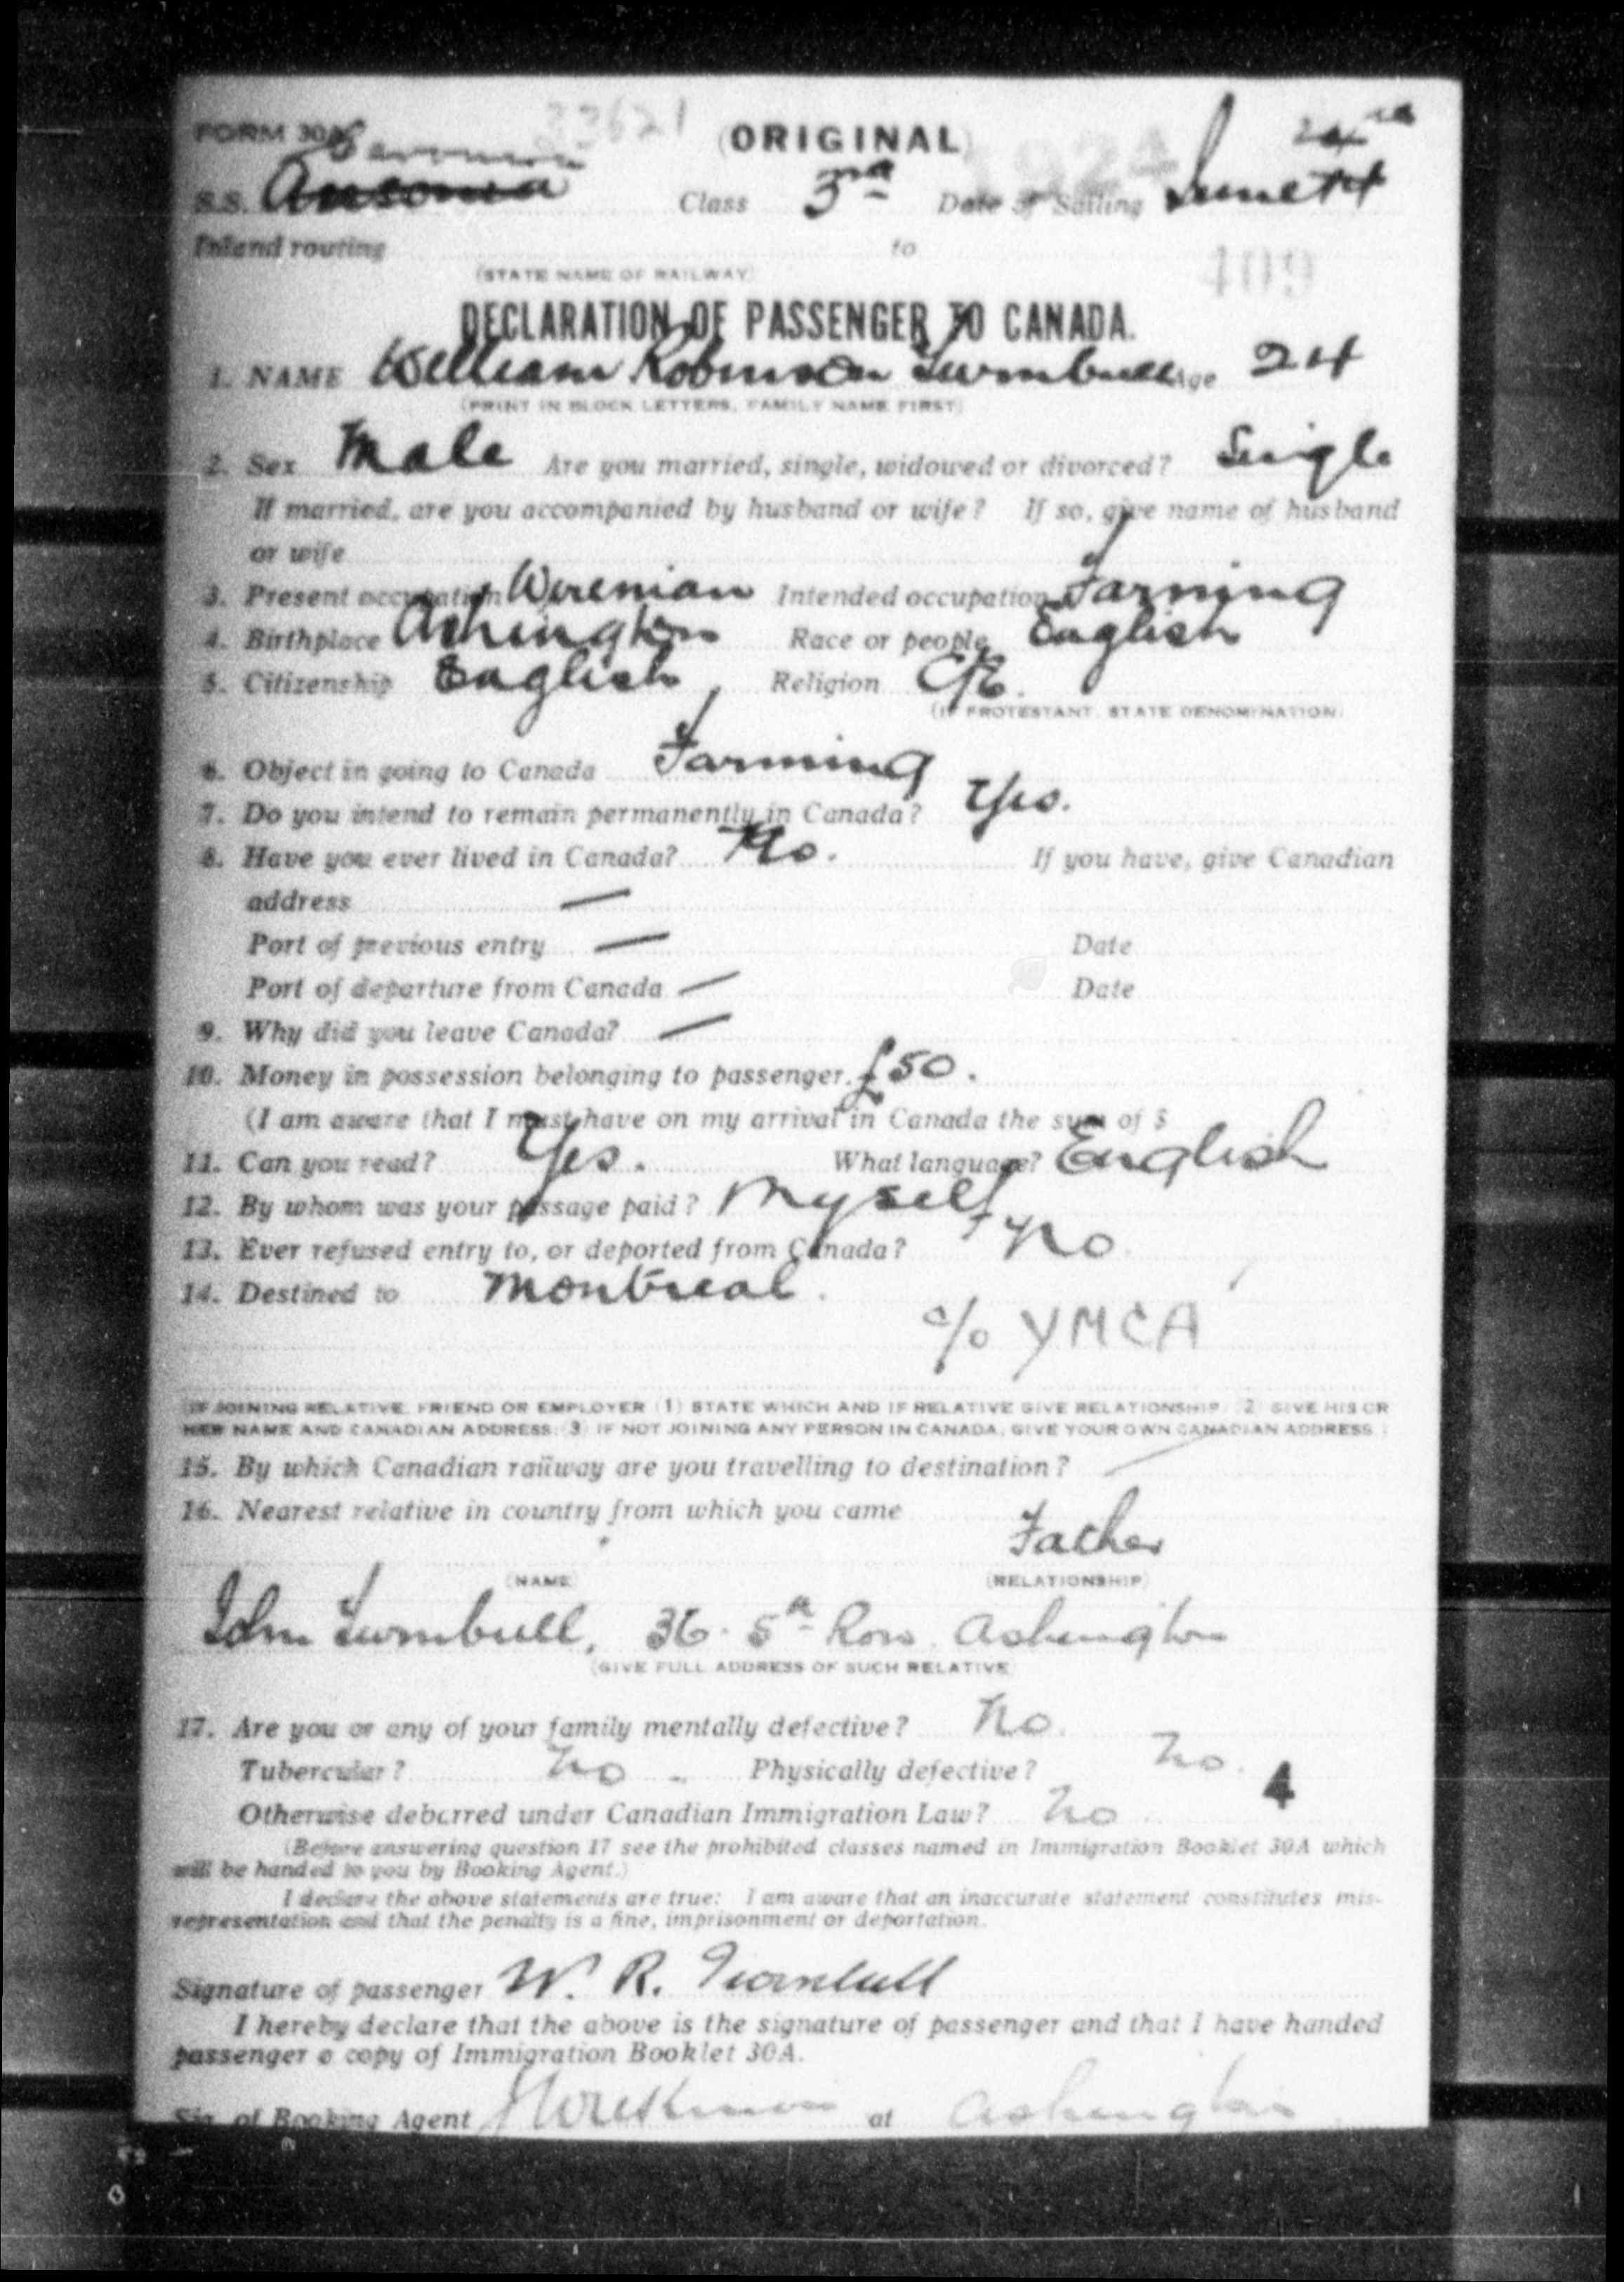 FORM 30A 33621 (ORIGINAL) 1924
S.S. Ausonia Class 3rd Date of Sailing June
Inland routing to
(STATE NAME OF RAILWAY) 409
DECLARATION OF PASSENGER TO CANADA.
1. NAME William Robinson Turnbull Age 24
(PRINT IN BLOCK LETTERS, FAMILY NAME FIRST)
2. Sex Male Are you married, single, widowed or divorced? Single
If married, are you accompanied by husband or wife? If so, give name of husband
or wife
3. Present occupation Wireman Intended occupation Farming
4. Birthplace Ashington Race or people English
5. Citizenship English Religion C/E.
(IF PROTESTANT, STATE DENOMINATION)
6. Object in going to Canada Farming
7. Do you intend to remain permanently in Canada? Yes.
8. Have you ever lived in Canada? No. If you have, give Canadian
address —
Port of previous entry — Date
Port of departure from Canada — Date
9. Why did you leave Canada? —
10. Money in possession belonging to passenger. £50.
(I am aware that I must have on my arrival in Canada the sum of $
11. Can you read? Yes. What language? English
12. By whom was your passage paid? Myself
13. Ever refused entry to, or deported from Canada? No.
14. Destined to Montreal.
c/o YMCA
(IF JOINING RELATIVE, FRIEND OR EMPLOYER (1) STATE WHICH AND IF RELATIVE GIVE RELATIONSHIP (2) GIVE HIS OR
HER NAME AND CANADIAN ADDRESS, (3) IF NOT JOINING ANY PERSON IN CANADA, GIVE YOUR OWN CANADIAN ADDRESS.)
15. By which Canadian railway are you travelling to destination?
16. Nearest relative in country from which you came
Father
(NAME) (RELATIONSHIP)
John Turnbull, 36. 5th Row. Ashington
(GIVE FULL ADDRESS OF SUCH RELATIVE)
17. Are you or any of your family mentally defective? No.
Tubercular? No. Physically defective? No.
Otherwise debarred under Canadian Immigration Law? No 4
(Before answering question 17 see the prohibited classes named in Immigration Booklet 30A which
will be handed to you by Booking Agent.)
I declare the above statements are true: I am aware that an inaccurate statement constitutes mis-
representation and that the penalty is a fine, imprisonment or deportation.
Signature of passenger W. R. Turnbull
I hereby declare that the above is the signature of passenger and that I have handed
passenger a copy of Immigration Booklet 30A.
Sig. of Booking Agent at Ashington